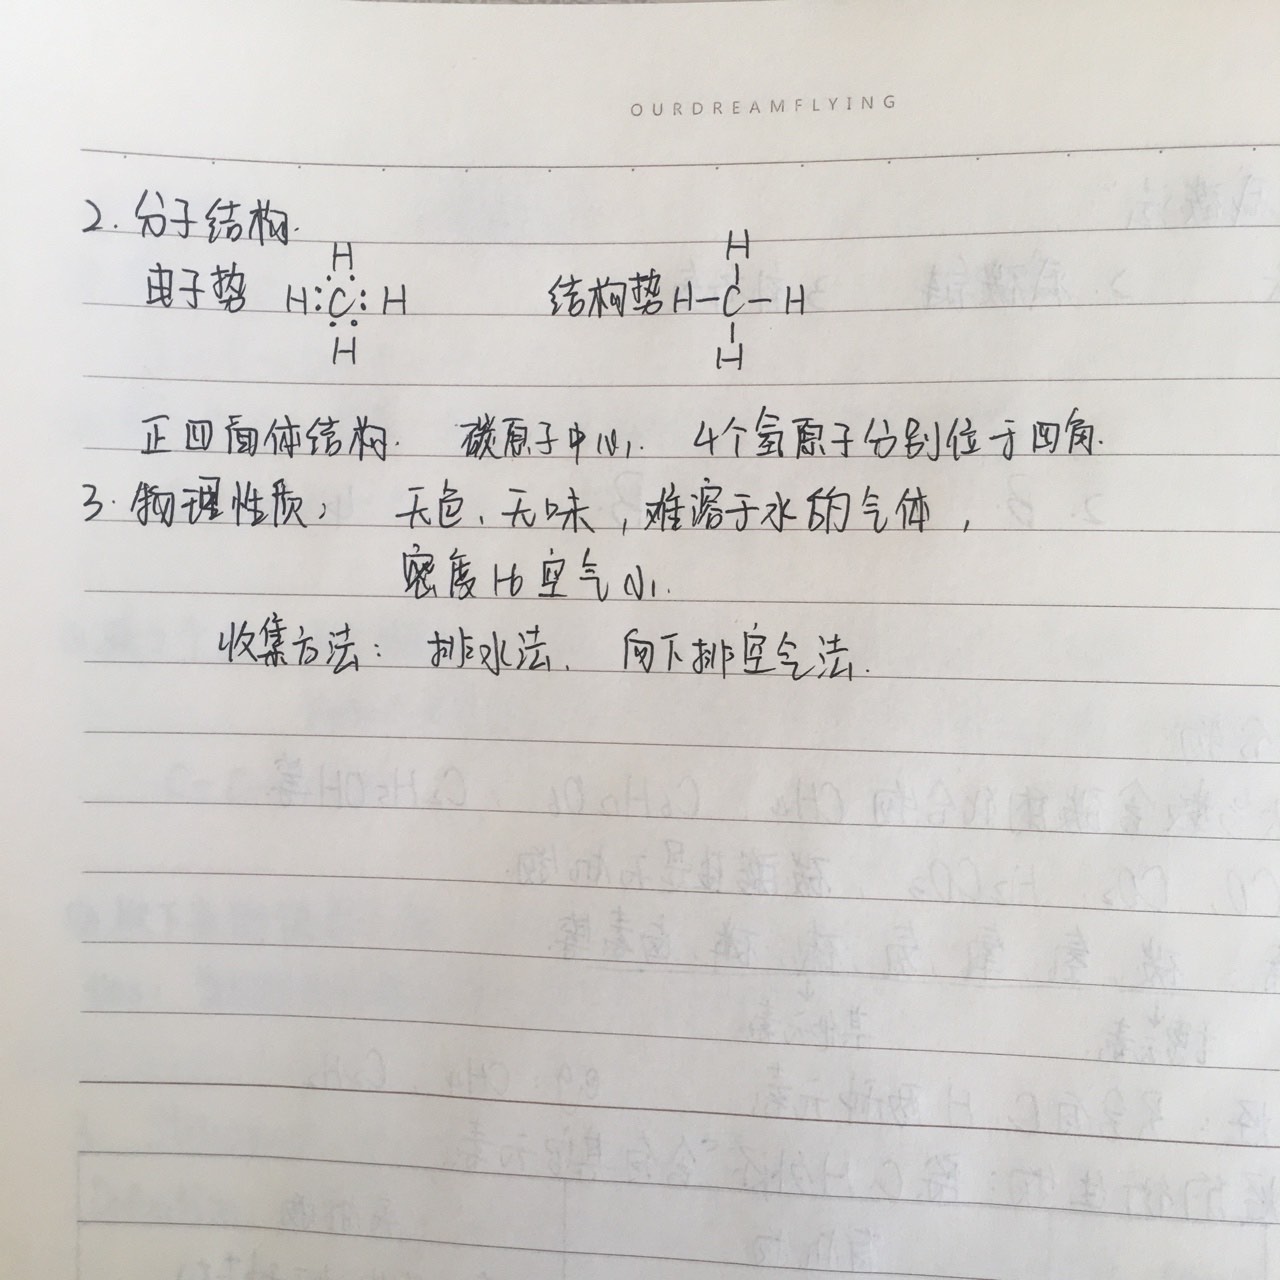 OURDREAMFLYING
2. 分子结构.
H
电子势 H:C:H 结构势 H-C-H
H
H
H
正四面体结构. 碳原子中心. 4个氢原子分别位于四角.
3. 物理性质: 无色、无味,难溶于水的气体,
密度比空气小.
收集方法: 排水法、 向下排空气法.